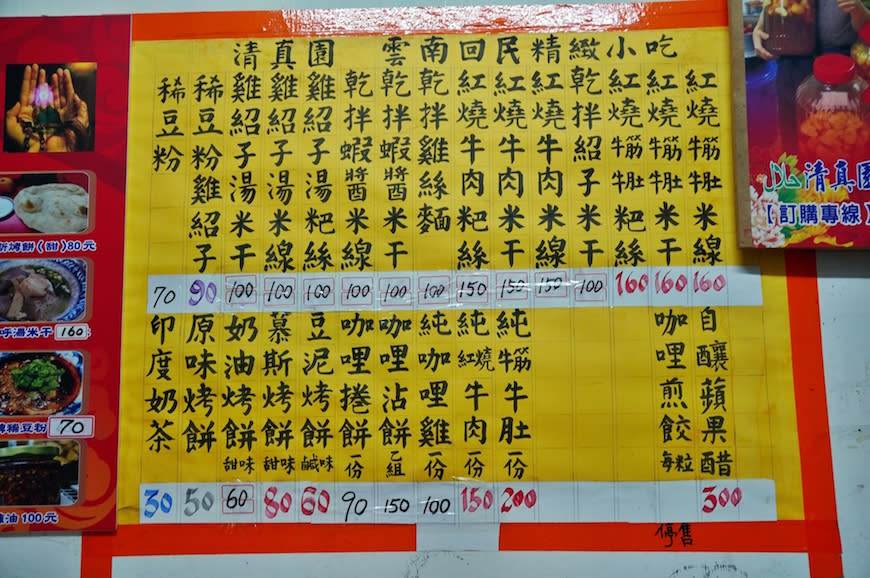 清真園 雲南回民精緻小吃
稀豆粉 70
稀豆粉雞紹子 90
雞紹子湯米干 100
雞紹子湯米線 100
雞紹子湯粑絲 100
乾拌蝦醬米線 100
乾拌蝦醬米干 100
乾拌雞絲麵 100
紅燒牛肉粑絲 150
紅燒牛肉米干 150
紅燒牛肉米線 150
乾拌紹子米干 100
紅燒牛筋牛肚粑絲 160
紅燒牛筋牛肚米干 160
紅燒牛筋牛肚米線 160
印度奶茶 30
原味烤餅 50
奶油烤餅甜味 60
慕斯烤餅甜味 80
豆泥烤餅鹹味 60
咖哩捲餅一份 90
咖哩沾餅乙組 150
純咖哩雞一份 100
純紅燒牛肉一份 150
純牛筋牛肚一份 200
咖哩煎餃每粒
停售
自釀蘋果醋 300
斯烤餅(甜)80元
呼湯米干 160
稀豆粉 70
油100元
清真園
【訂購專線】